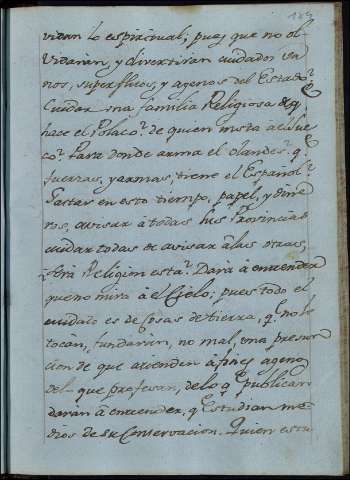 vieran lo espiritual; pues que no ol-
vidarian, y divertirian cuidados en
nos, superfluos, y agenos del Estado?
Cuidar una familia Religiosa de q
hace el Polaco? de quien insta al Sue
co? Para donde arma el olandes? q.
fuerzas, y armas, tiene el Español?
Gastar en esto tiempo, papel, y dine
ros, avisar à todas sus Provincias
cuidar todas de avisar à las otras,
serà Religion esta? Darà à entender
que no mira à el Cielo; pues todo el
cuidado es de cosas de tierra, q. no le
tocan, fundaran, no mal, una presun
cion de que atienden à fines ageno
del que profesan, de lo q publican
daràn à entender, q. Estudian me
dios de su Conservacion. Quien estu